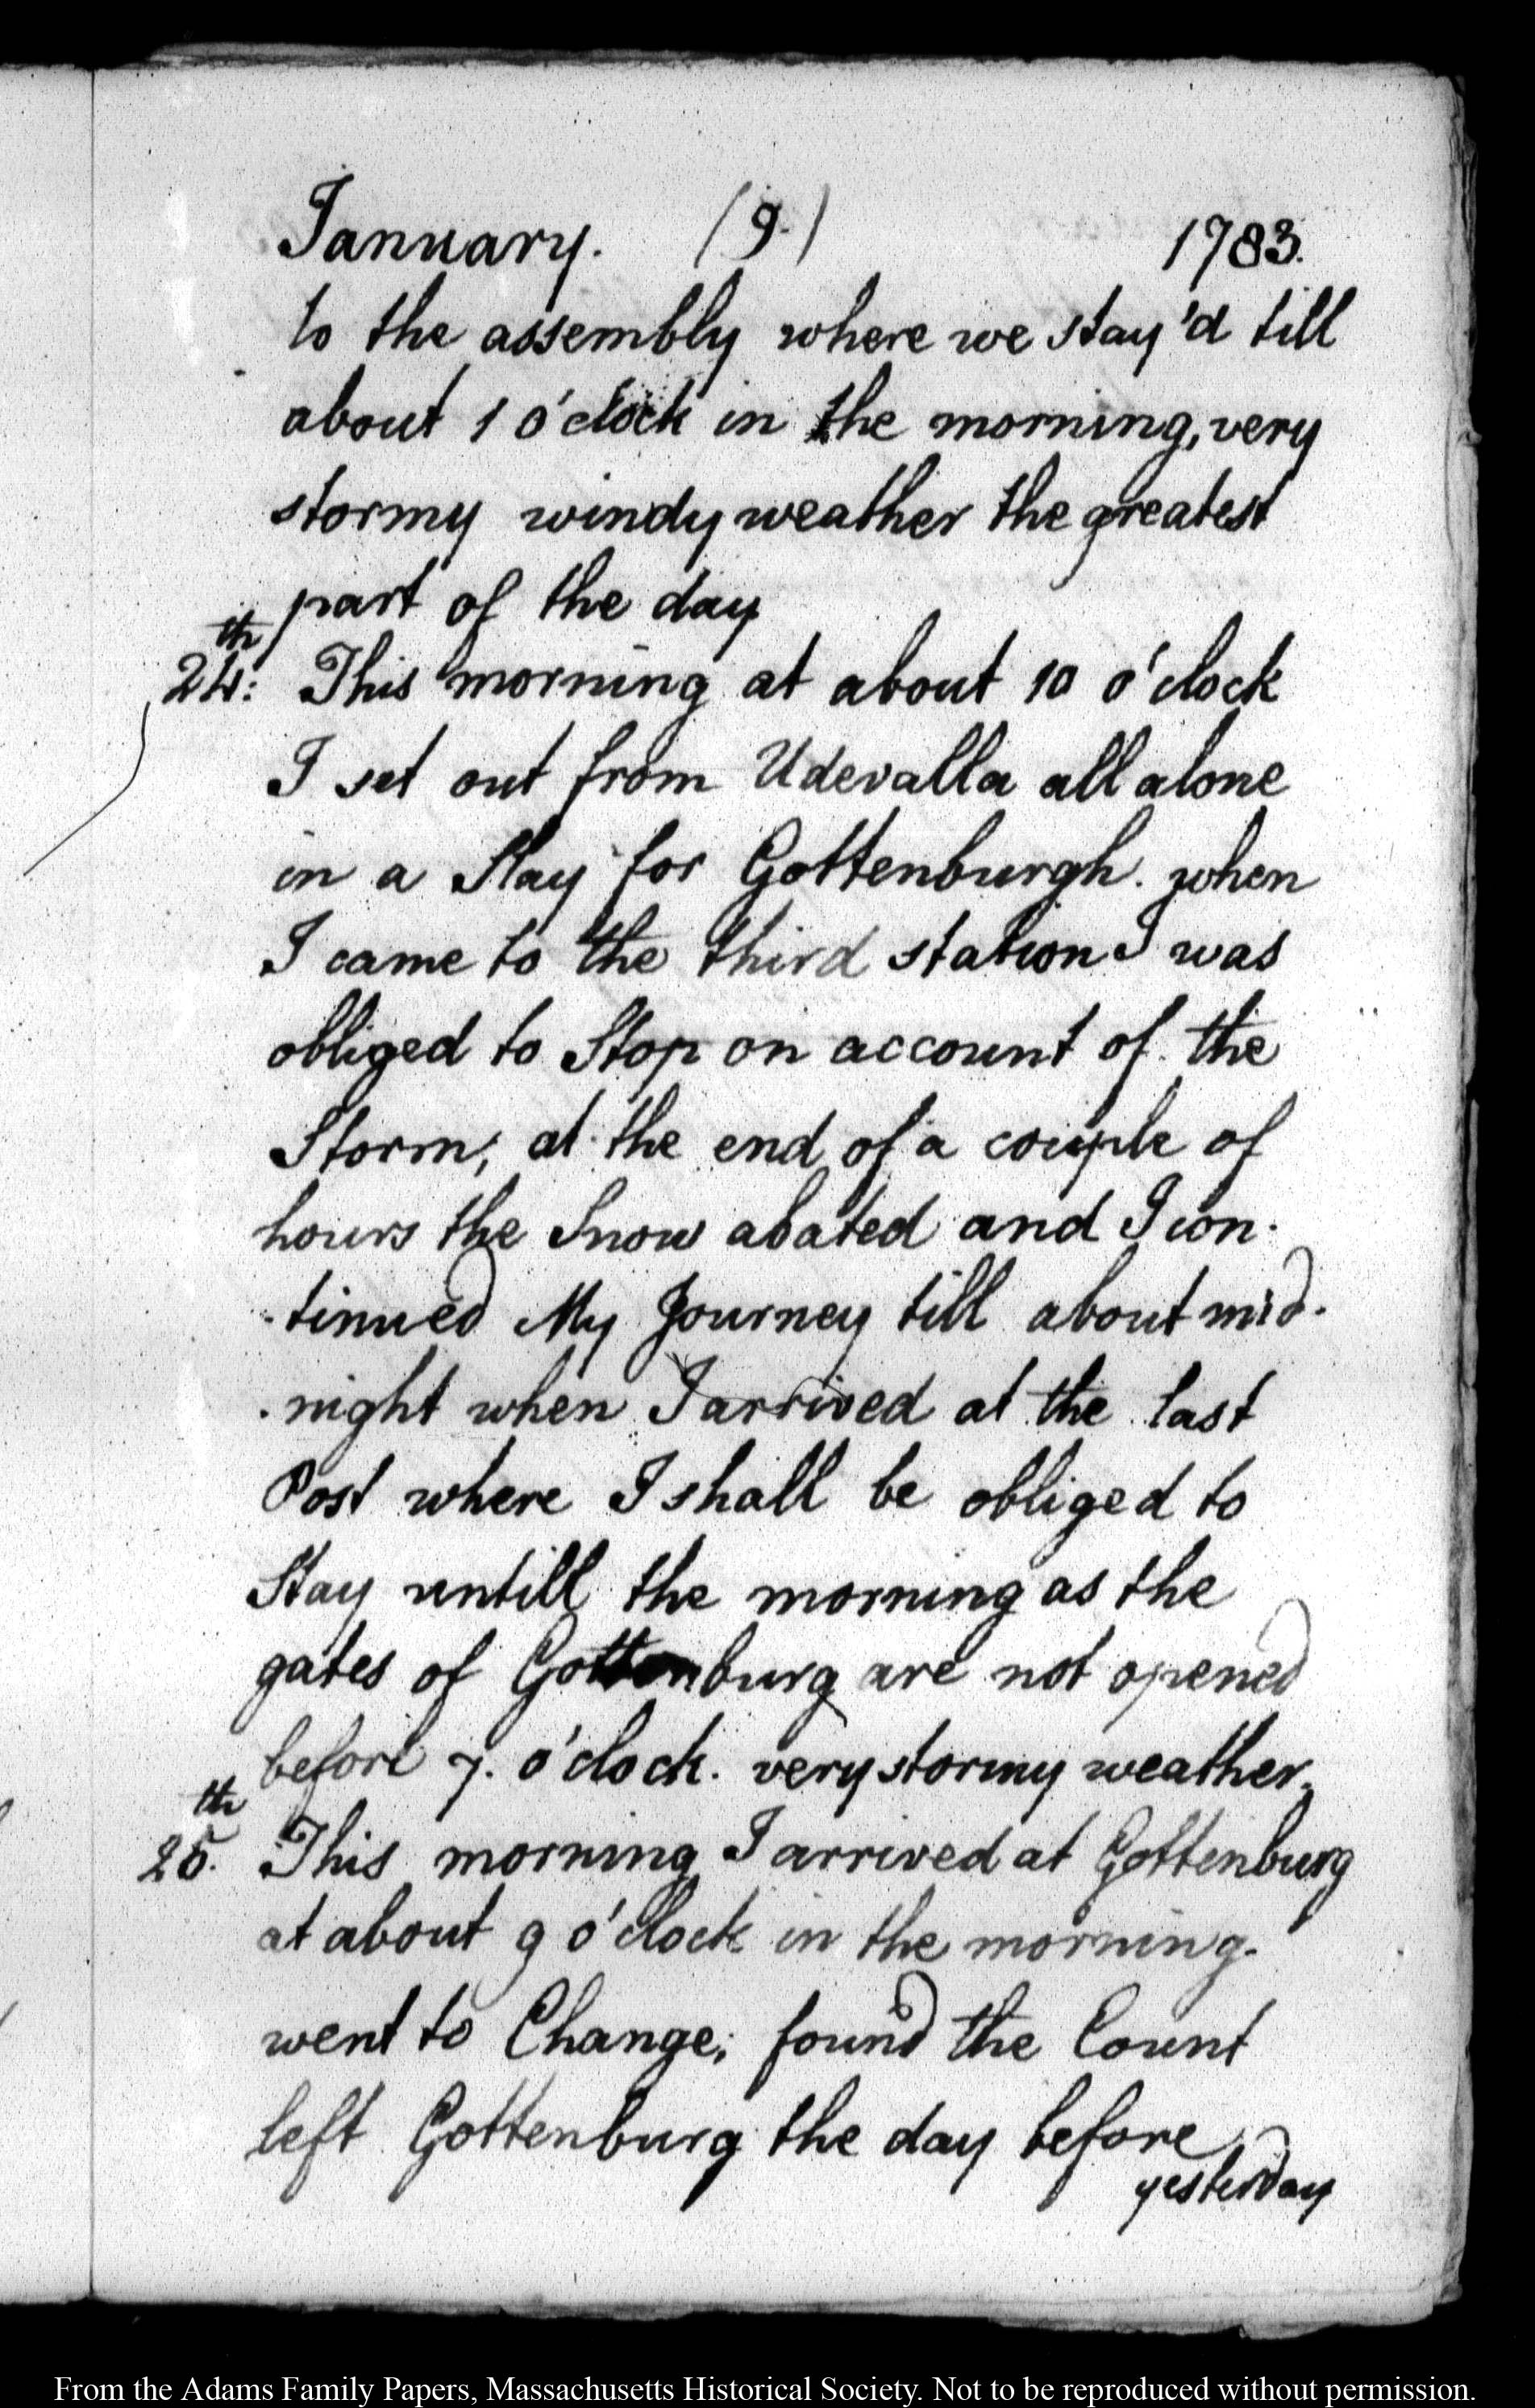 January. (9.) 1783.
to the assembly where we stay'd till
about 1 o'clock in the morning, very
stormy windy weather the greatest
part of the day
24th: This morning at about 10 o'clock
I set out from Udevalla all alone
in a Slay for Gottenburgh. when
I came to the third station I was
obliged to Stop on account of the
Storm; at the end of a couple of
hours the Snow abated and I con-
-tinued My Journey till about mid-
-night when I arrived at the last
Post where I shall be obliged to
Stay untill the morning as the
gates of Gottenburg are not opened
before 7. o'clock. very stormy weather.
25th. This morning I arrived at Gottenburg
at about 9 o'clock in the morning.
went to Change; found the Count
left Gottenburg the day before
yesterday
From the Adams Family Papers, Massachusetts Historical Society. Not to be reproduced without permission.